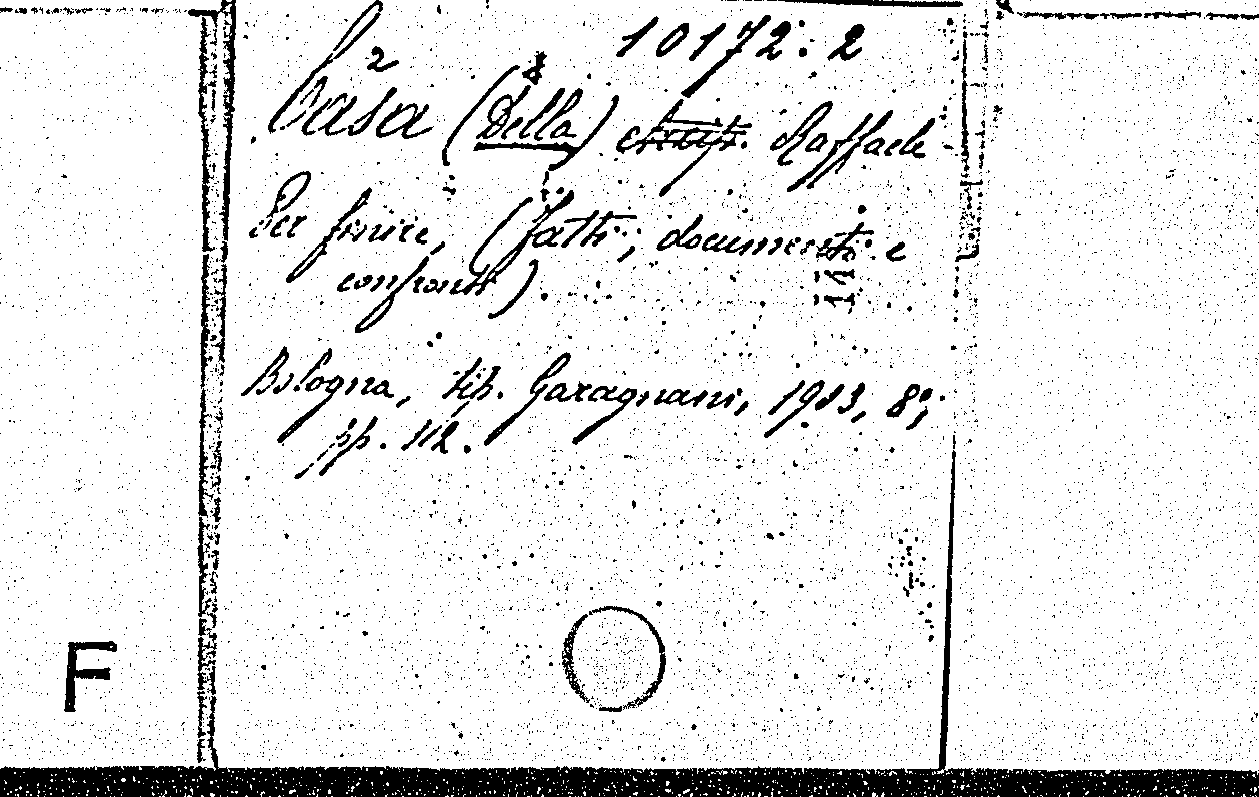 10172:2
2 1
Casa (Della) Raffaele
Per finire, (fatti, documenti e
confronti).
Bologna, tip. Garagnani, 1903, 8°,
pp. 112.
F